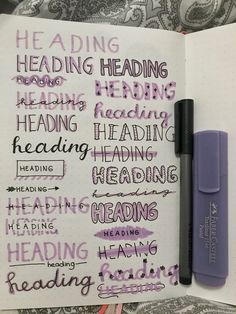 HEADING
HEADING
HEADING
HEADING
heading
HEADING
heading
HEADING
HEADING
HEADING
HEADING
HEADING
HEADING
heading
heading
HEADING
HEADING
heading
HEADING
HEADING
HEADING
heading
HEADING
HEADING
HEADING
heading
heading
FABER-CASTELL